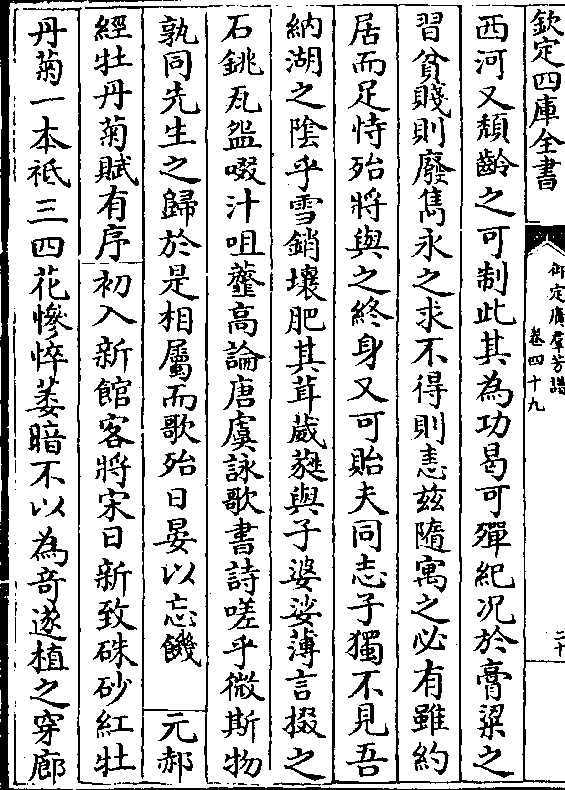 欽定四庫全書
御定廣羣芳譜
卷四十九
二十
西河又頽齡之可制此其為功曷可殫紀况於膏粱之
習貧賤則廢雋永之求不得則恚兹隨寓之必有雖約
居而足恃殆將與之終身又可貽夫同志子獨不見吾
納湖之隂乎雪銷壤肥其茸葳蕤與子婆娑薄言掇之
石銚瓦盌啜汁咀虀高論唐虞詠歌書詩嗟乎微斯物
孰同先生之歸於是相屬而歌殆日晏以忘饑 元郝
經牡丹菊賦有序 初入新館客將宋日新致硃砂紅牡
丹菊一本祗三四花慘悴萎暗不以為竒遂植之穿廊